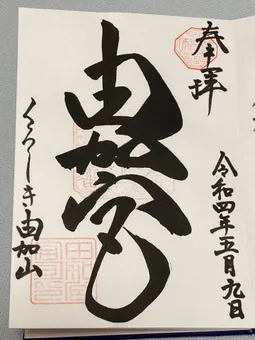 奉拝
令和四年五月九日
由加宮
くらしき由加山